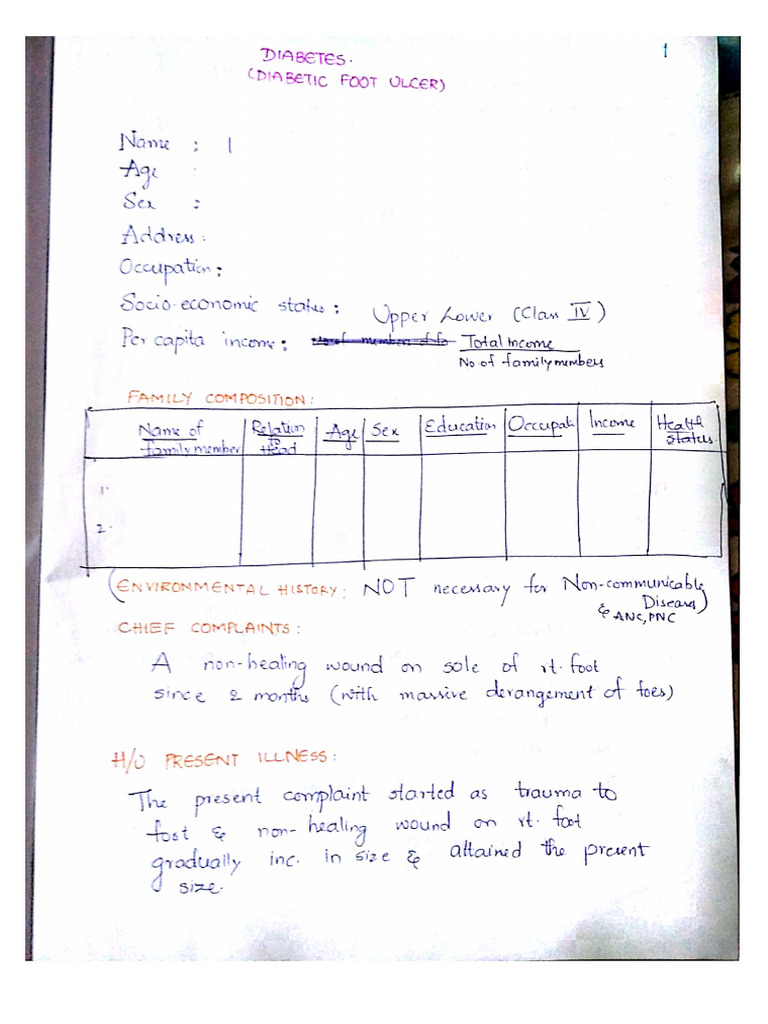 1
DIABETES.
(DIABETIC FOOT ULCER)
Name : |
Age :
Sex :
Address :
Occupation :
Socio-economic status : Upper Lower (Class IV)
Per capita income : No of members of fa Total Income
No of family members
FAMILY COMPOSITION :
Name of family member | Relation to Head | Age | Sex | Education | Occupatn | Income | Health status
1.
2.
(ENVIRONMENTAL HISTORY : NOT necessary for Non-communicable
Diseases)
& ANC, PNC
CHIEF COMPLAINTS :
A non-healing wound on sole of rt. foot
since 2 months (with massive derangement of toes)
H/O PRESENT ILLNESS :
The present complaint started as trauma to
foot & non-healing wound on rt. foot
gradually inc. in size & attained the present
size.